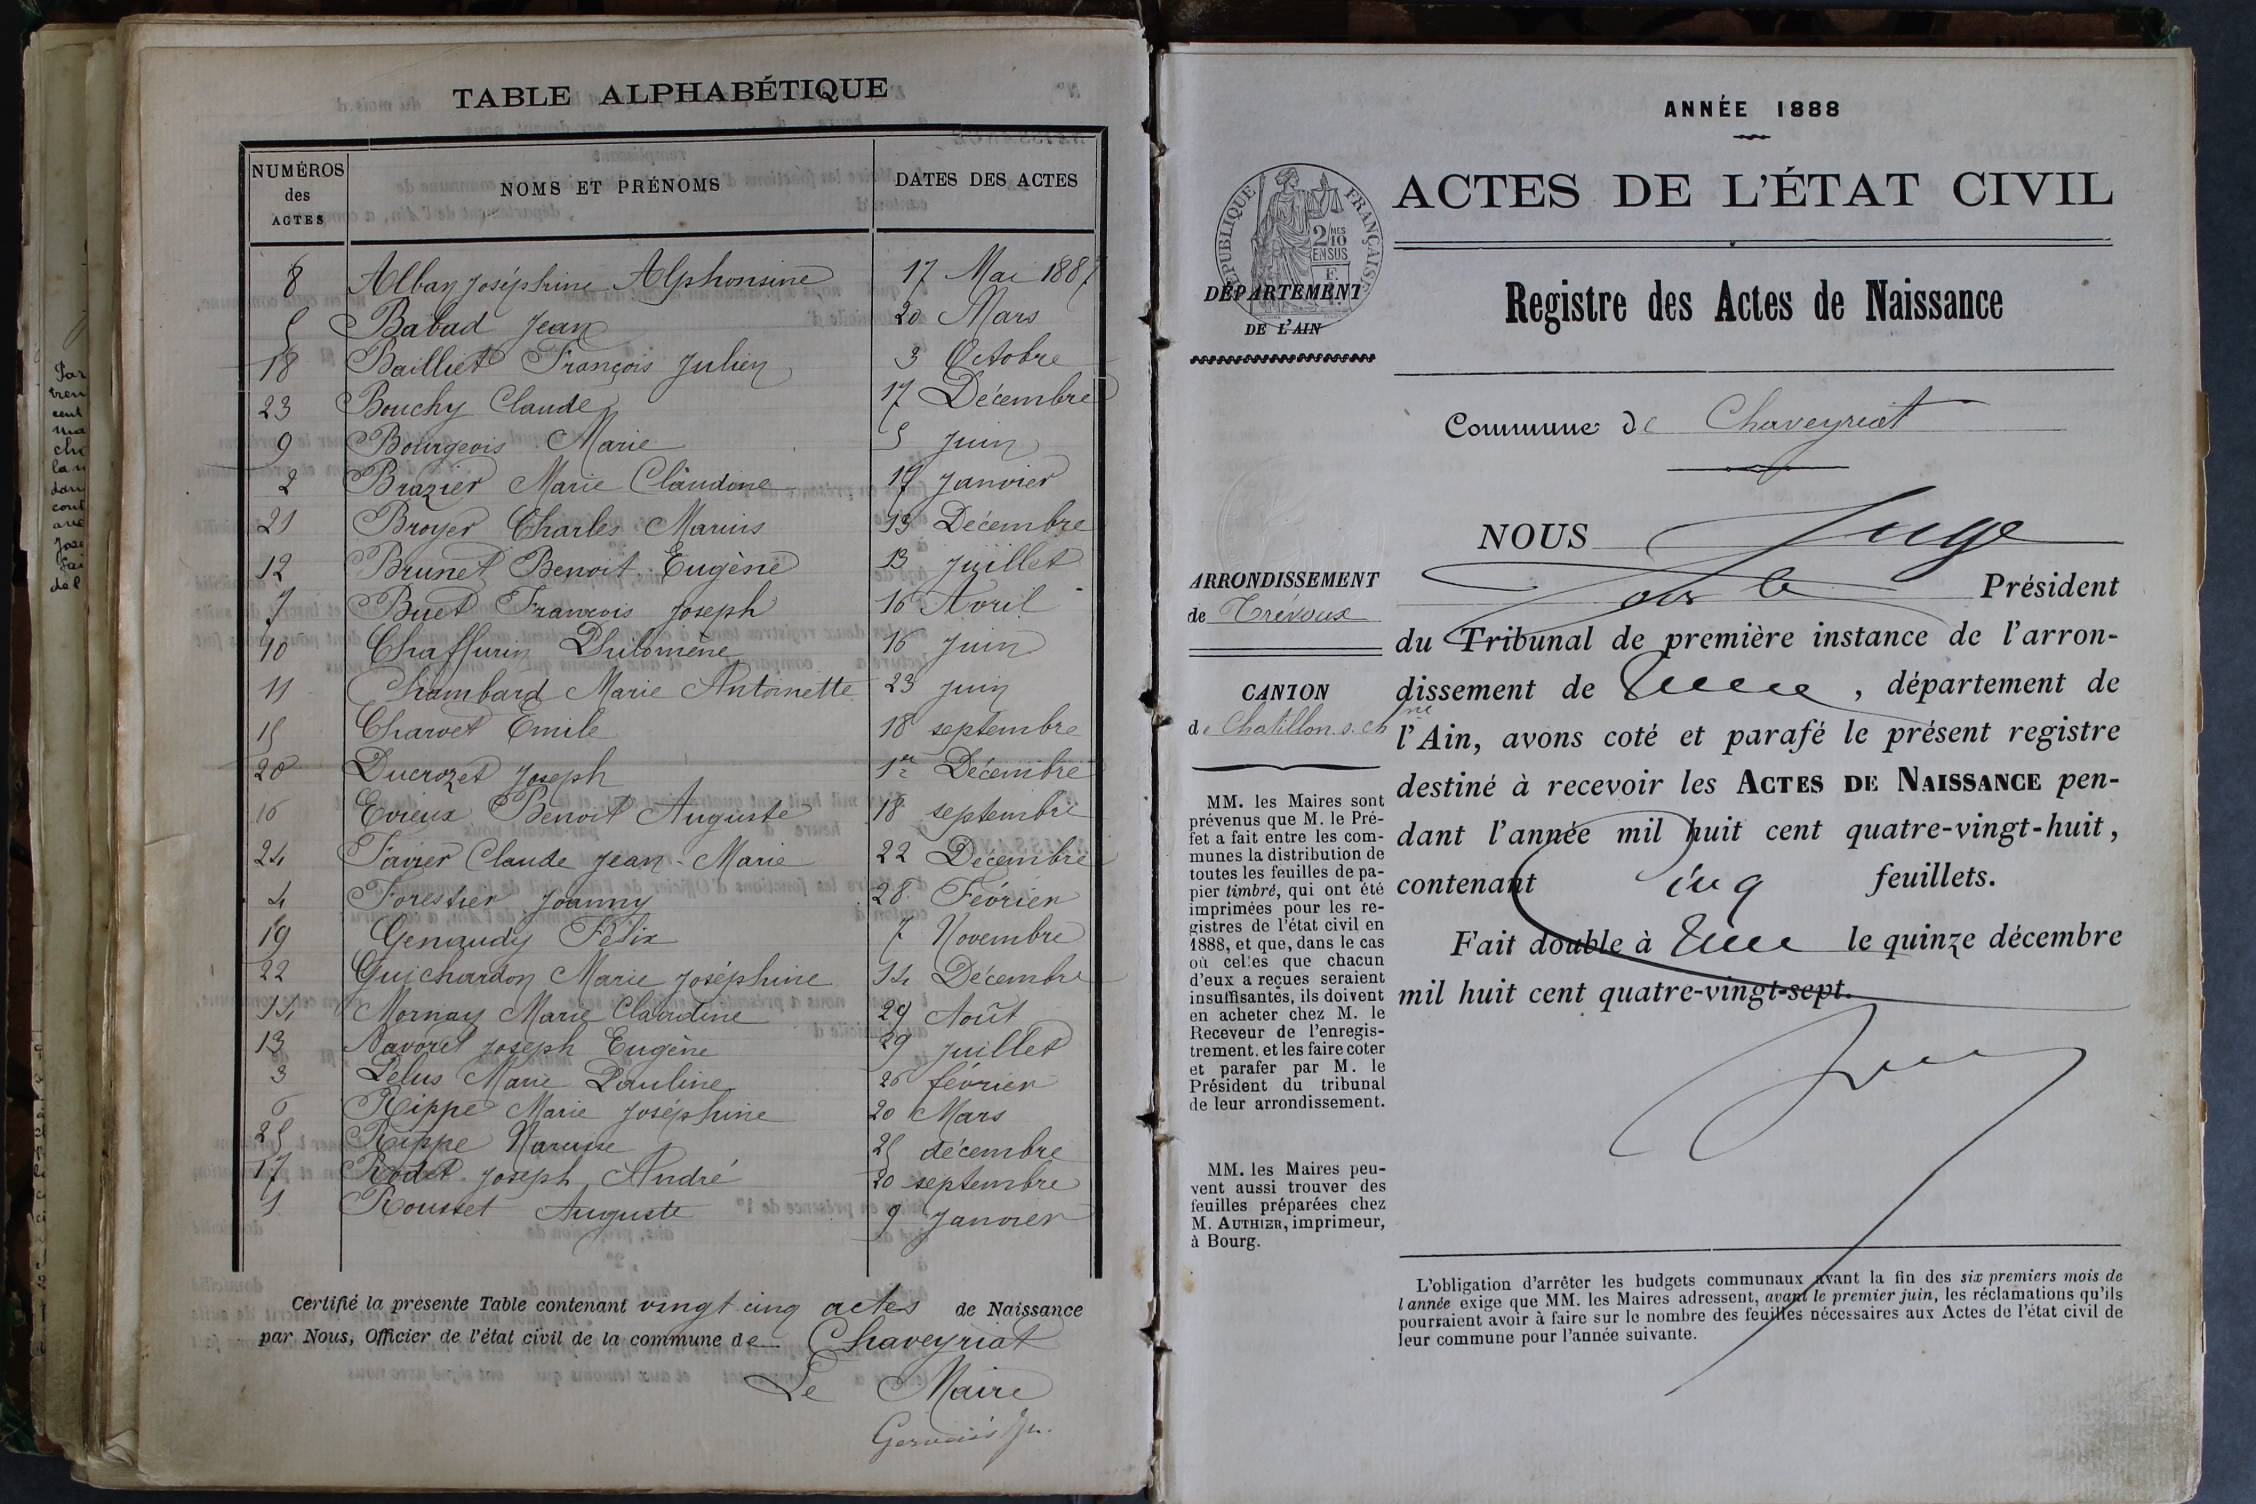 TABLE ALPHABÉTIQUE
NUMÉROS des ACTES
NOMS ET PRÉNOMS
DATES DES ACTES
8 Alban Joséphine Alphonsine 17 Mai 1887
5 Babad Jean 20 Mars
18 Bailliet François Julien 3 Octobre
23 Bouchy Claude 17 Décembre
9 Bourgeois Marie 5 Juin
2 Brazier Marie Claudine 17 Janvier
21 Broyer Charles Marius 13 Décembre
12 Brunet Benoit Eugène 13 Juillet
7 Buet François Joseph 16 Avril
10 Chaffurin Philomène 16 Juin
11 Chambard Marie Antoinette 23 Juin
15 Charvet Emile 18 septembre
20 Ducrozet Joseph 1er Décembre
16 Evieux Benoit Auguste 18 septembre
24 Favier Claude Jean-Marie 22 Décembre
4 Forestier Joanny 28 Février
19 Genaudy Félix 7 Novembre
22 Guichardon Marie Joséphine 14 Décembre
14 Mornay Marie Claudine 29 Août
13 Navoret Joseph Eugène 29 Juillet
3 Pelus Marie Pauline 26 février
6 Rippe Marie Joséphine 20 Mars
25 Rippe Narcisse 25 décembre
17 Rodet Joseph André 20 septembre
1 Rousset Auguste 9 Janvier
Certifié la présente Table contenant vingt cinq actes de Naissance
par Nous, Officier de l'état civil de la commune de Chaveyriat
Le Maire
Gervais
ANNÉE 1888
RÉPUBLIQUE FRANÇAISE
2/10 MES
EN SUS
ACTES DE L'ÉTAT CIVIL
DÉPARTEMENT
DE L'AIN
Registre des Actes de Naissance
Commune de Chaveyriat
ARRONDISSEMENT
de Trévoux
CANTON
de Chatillon s. Chne
MM. les Maires sont
prévenus que M. le Pré-
fet a fait entre les com-
munes la distribution de
toutes les feuilles de pa-
pier timbré, qui ont été
imprimées pour les re-
gistres de l'état civil en
1888, et que, dans le cas
où celles que chacun
d'eux a reçues seraient
insuffisantes, ils doivent
en acheter chez M. le
Receveur de l'enregis-
trement, et les faire coter
et parafer par M. le
Président du tribunal
de leur arrondissement.
MM. les Maires peu-
vent aussi trouver des
feuilles préparées chez
M. AUTHIER, imprimeur,
à Bourg.
NOUS Juge
pour le Président
du Tribunal de première instance de l'arron-
dissement de , département de
l'Ain, avons coté et parafé le présent registre
destiné à recevoir les ACTES DE NAISSANCE pen-
dant l'année mil huit cent quatre-vingt-huit,
contenant cinq feuillets.
Fait double à le quinze décembre
mil huit cent quatre-vingt-sept.
L'obligation d'arrêter les budgets communaux avant la fin des six premiers mois de
l'année exige que MM. les Maires adressent, avant le premier juin, les réclamations qu'ils
pourraient avoir à faire sur le nombre des feuilles nécessaires aux Actes de l'état civil de
leur commune pour l'année suivante.